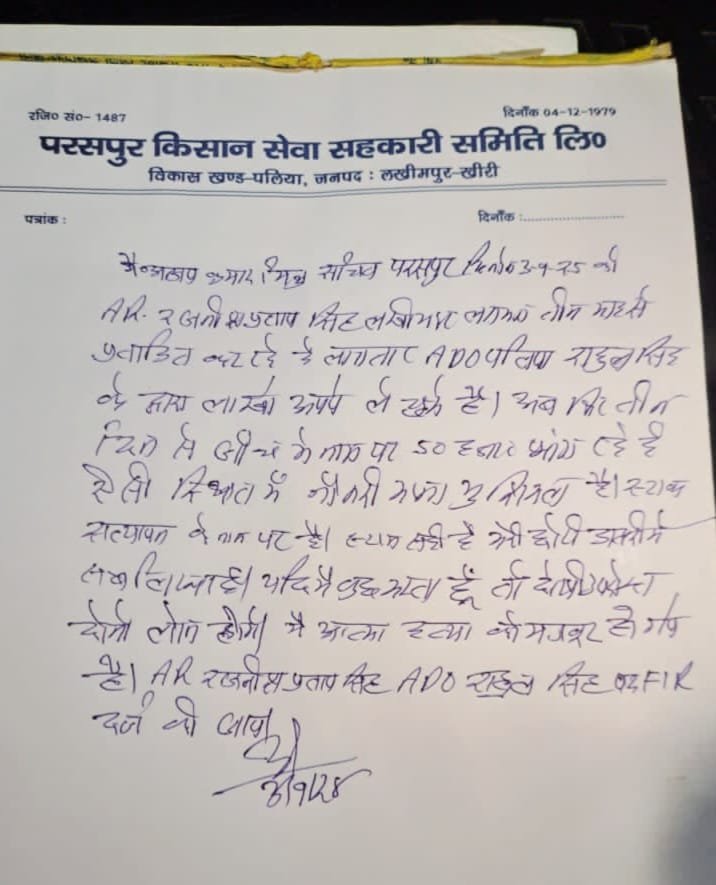 रजि० सं०- 1487
दिनाँक 04-12-1979
परसपुर किसान सेवा सहकारी समिति लि०
विकास खण्ड-पलिया, जनपद : लखीमपुर-खीरी
पत्रांक :
दिनाँक :............................
मै कुमार मिश्र सचिव परसपुर 3-9-25 को
AR. रजनीश प्रताप सिंह लखीमपुर लगभग तीन माह से
प्रताडित कर रहे है लगातार ADO पलिया राहुल सिंह
के द्वारा लाखो रूपये ले चुके है। अब फिर तीन
दिन से जाँच के नाम पर 50 हजार मांग रहे है
ऐसी स्थित में नौकरी करना मुश्किल है। स्टाक
सत्यापन के नाम पर है। स्टाक सही है मेरी छोटी डायरी में
सब लिखा है। यदि मै कुछ करता हूँ तो दोषी
दोनो लोग होंगे। मै आत्म हत्या को मजबूर हो गया
है। AR रजनीश प्रताप सिंह ADO राहुल सिंह पर FIR
दर्ज की जाय।